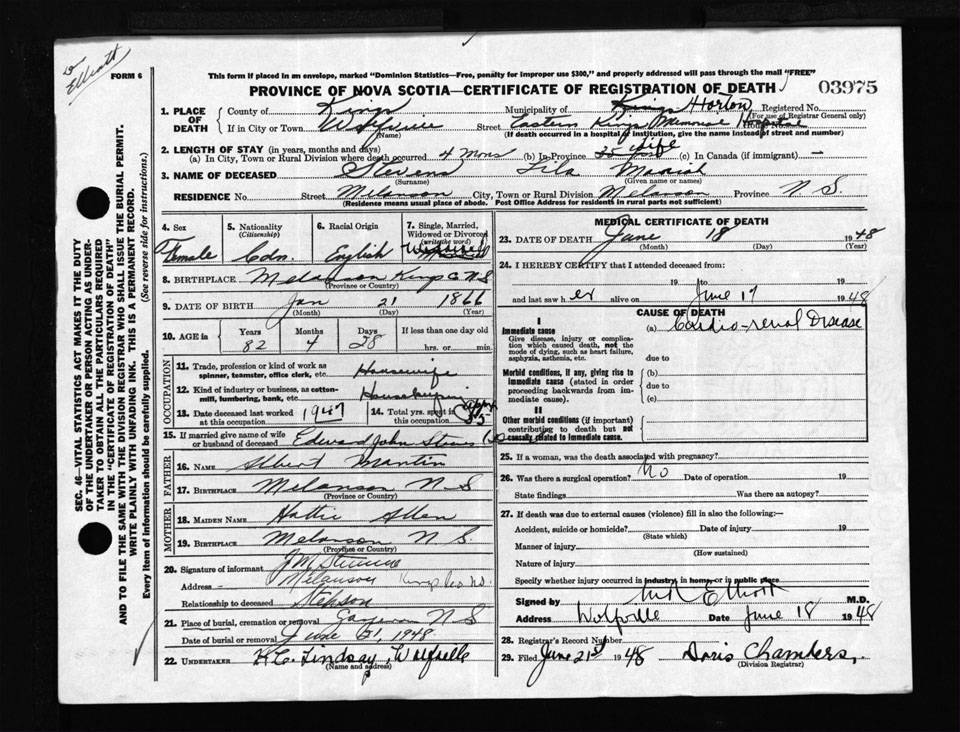 Elliott
FORM 6
This form if placed in an envelope, marked "Dominion Statistics—Free, penalty for improper use $300," and properly addressed will pass through the mail "FREE"
PROVINCE OF NOVA SCOTIA—CERTIFICATE OF REGISTRATION OF DEATH
03975
1. PLACE OF DEATH
County of Kings Municipality of Kings Horton Registered No.
(For use of Registrar General only)
If in City or Town Wolfville Street Eastern Kings Memorial Hospital House No.
(Name) (If death occurred in a hospital or institution, give the name instead of street and number)
2. LENGTH OF STAY (in years, months and days)
(a) In City, Town or Rural Division where death occurred 4 mons (b) In Province life (c) In Canada (if immigrant) —
3. NAME OF DECEASED Stevens Lila Maria
(Surname) (Given name or names)
RESIDENCE No. Street Melanson City, Town or Rural Division Melanson Province N S.
(Residence means usual place of abode. Post Office Address for residents in rural parts not sufficient)
4. Sex 5. Nationality 6. Racial Origin 7. Single, Married, Widowed or Divorced
(Citizenship) (write the word)
Female Cdn. English
8. BIRTHPLACE Melanson Kings Co N S
(Province or Country)
9. DATE OF BIRTH Jan 21 1866
(Month) (Day) (Year)
10. AGE in Years Months Days If less than one day old
82 4 28 hrs. or min.
OCCUPATION
11. Trade, profession or kind of work as spinner, teamster, office clerk, etc. Housewife
12. Kind of industry or business, as cotton-mill, lumbering, bank, etc. Housekeeping
13. Date deceased last worked at this occupation 1947 14. Total yrs. spent in
15. If married give name of wife or husband of deceased Edward John Stevens
FATHER
16. NAME Albert Martin
17. BIRTHPLACE Melanson N S
(Province or Country)
MOTHER
18. MAIDEN NAME Hattie Allen
19. BIRTHPLACE Melanson N S.
(Province or Country)
20. Signature of informant J M
Address Melanson Kings Co NS.
Relationship to deceased Stepson
21. Place of burial, cremation or removal N S
Date of burial or removal June 21, 1948
22. UNDERTAKER Lindsay, Wolfville
(Name and address)
MEDICAL CERTIFICATE OF DEATH
23. DATE OF DEATH June 18 1948
(Month) (Day) (Year)
24. I HEREBY CERTIFY that I attended deceased from:
19 to 19
and last saw her alive on June 17 1948
CAUSE OF DEATH
I
Immediate cause (a) Cardio-renal Disease
Give disease, injury or complication which caused death, not the mode of dying, such as heart failure, asphyxia, asthenia, etc.
due to
Morbid conditions, if any, giving rise to immediate cause (stated in order proceeding backwards from immediate cause).
(b)
due to
(c)
II
Other morbid conditions (if important) contributing to death but not causally related to immediate cause.
25. If a woman, was the death associated with pregnancy?
26. Was there a surgical operation? No Date of operation 19
State findings Was there an autopsy?
27. If death was due to external causes (violence) fill in also the following:—
Accident, suicide or homicide? Date of injury 19
(State which)
Manner of injury
(How sustained)
Nature of injury
Specify whether injury occurred in industry, in home, or in public place
Signed by Elliott M.D.
Address Wolfville Date June 18 1948
28. Registrar's Record Number
29. Filed June 21st 1948 Doris Chambers,
(Division Registrar)
SEC. 46—VITAL STATISTICS ACT MAKES IT THE DUTY
OF THE UNDERTAKER OR PERSON ACTING AS UNDER-
TAKER TO OBTAIN ALL THE PARTICULARS REQUIRED
IN THE "CERTIFICATE OF REGISTRATION OF DEATH"
AND TO FILE THE SAME WITH THE DIVISION REGISTRAR WHO SHALL ISSUE THE BURIAL PERMIT.
WRITE PLAINLY WITH UNFADING INK. THIS IS A PERMANENT RECORD.
Every item of information should be carefully supplied. (See reverse side for instructions.)